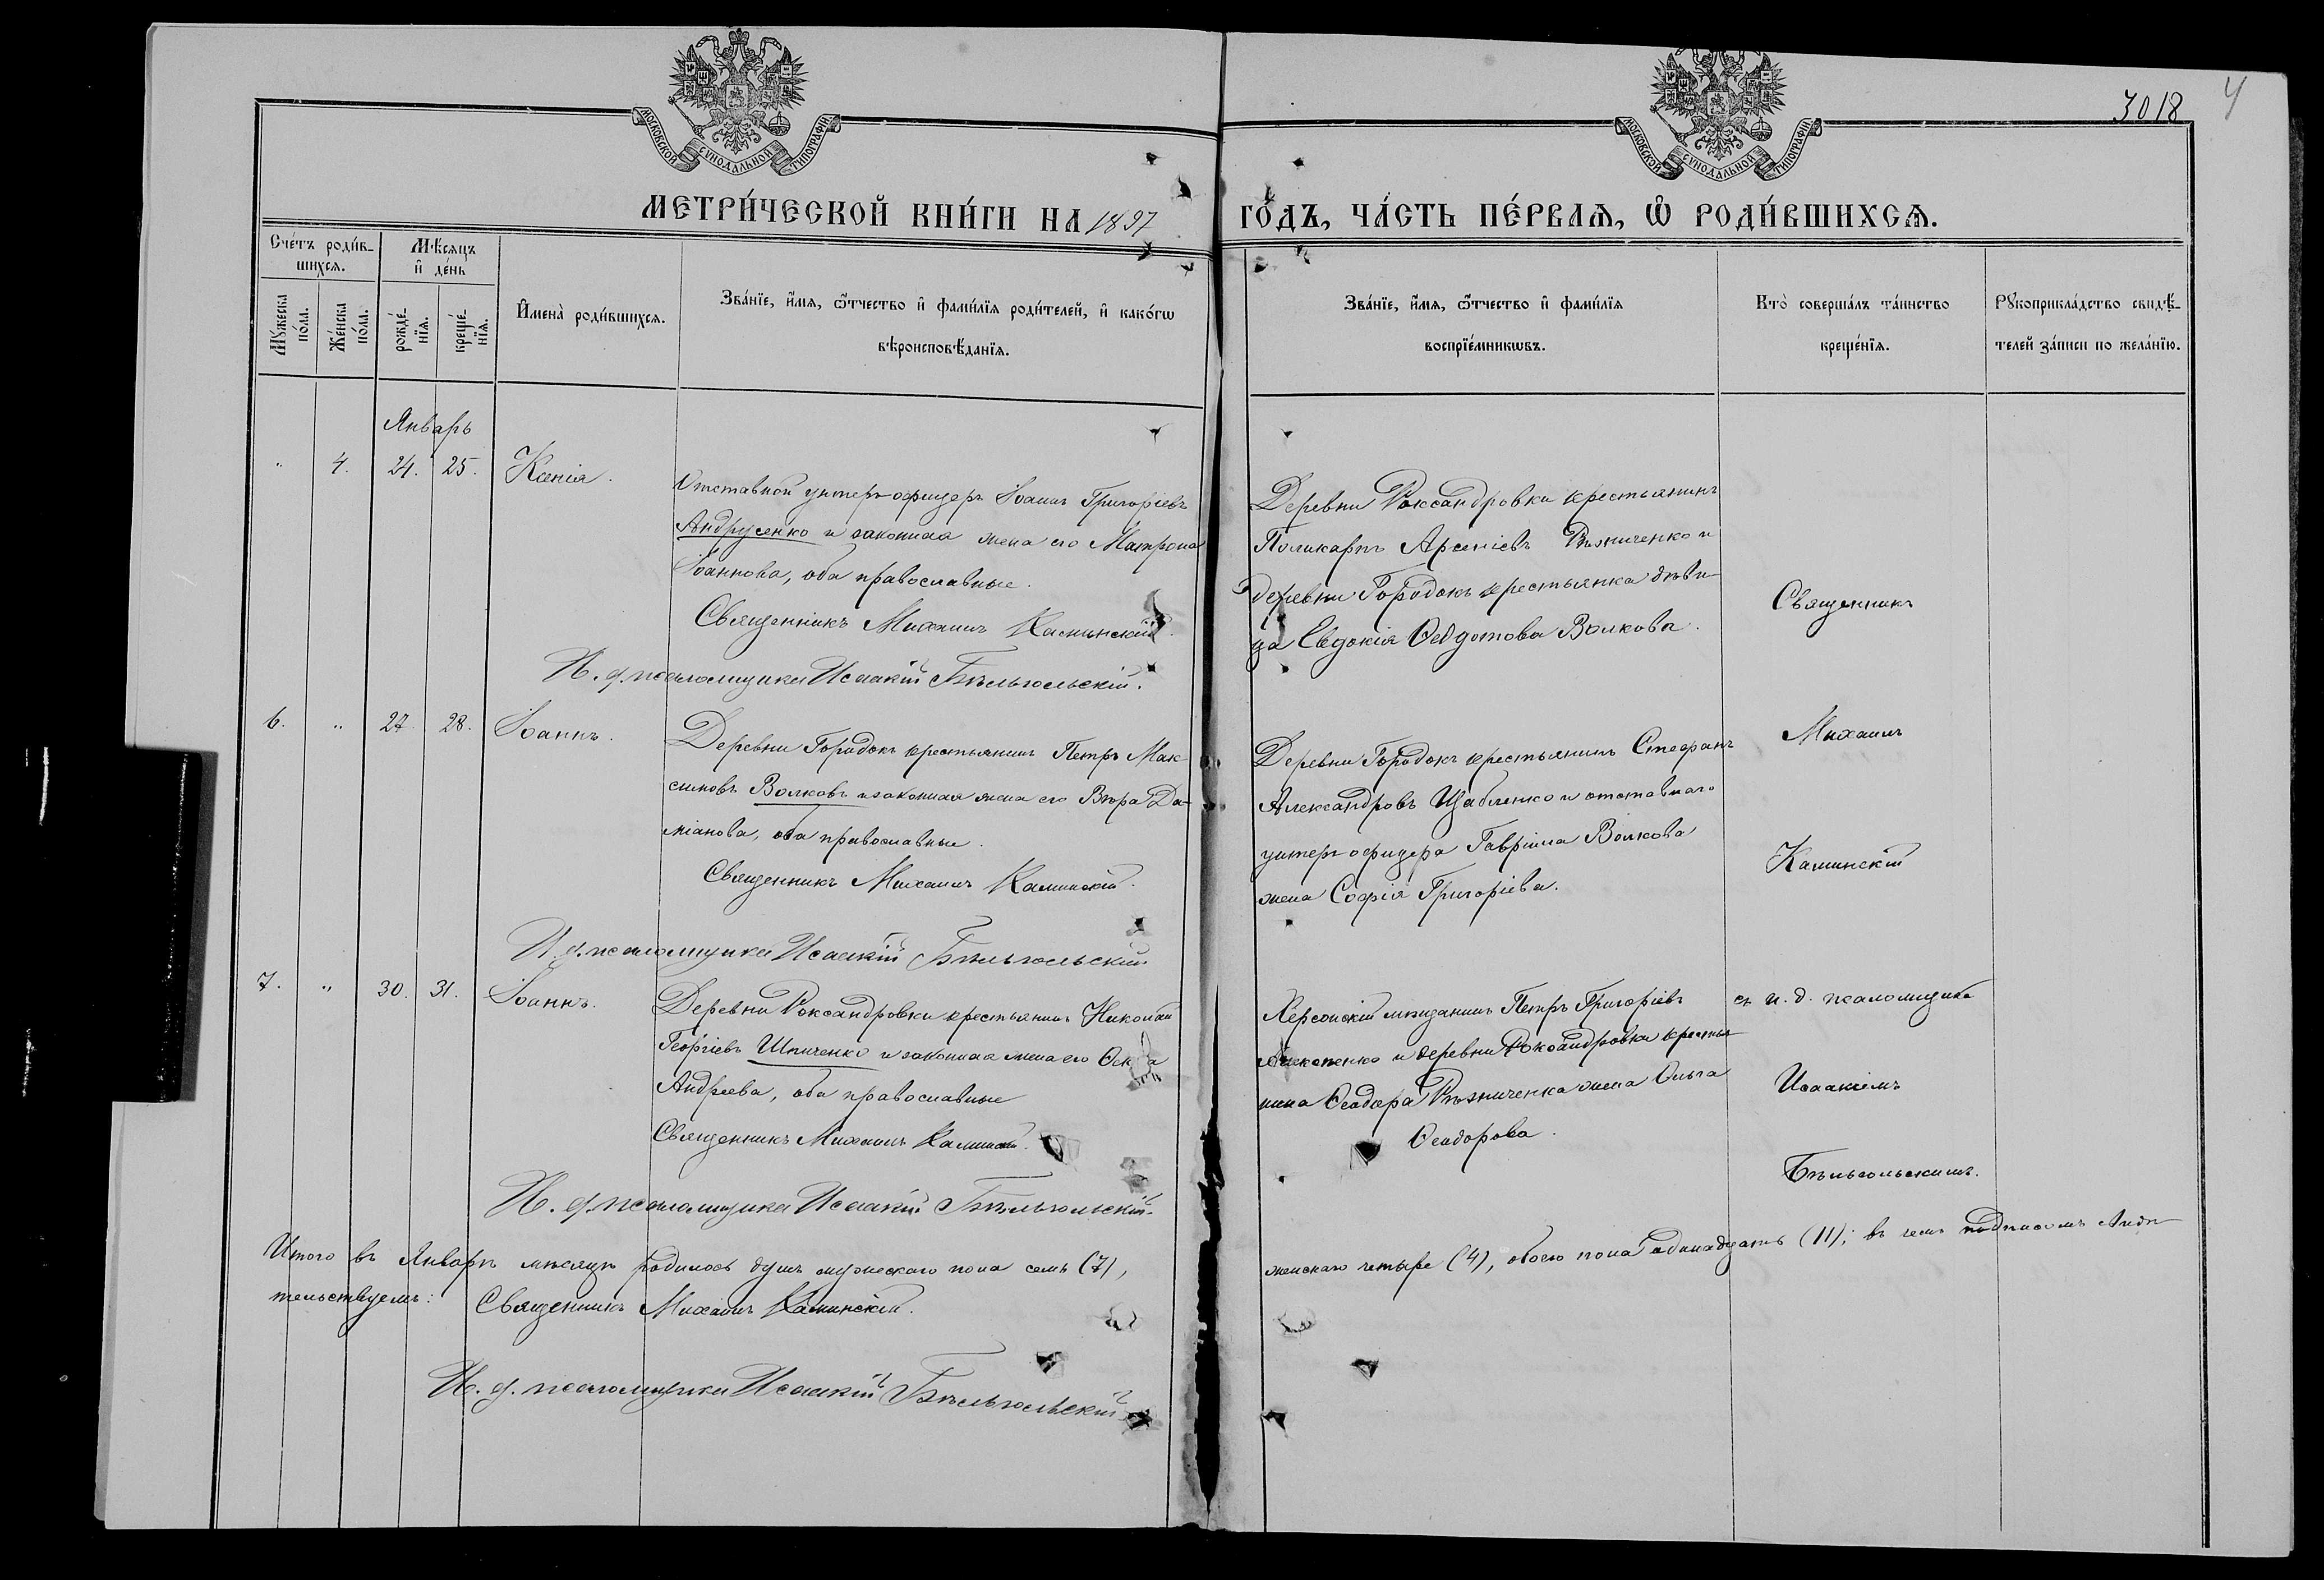 МОСКОВСКОЙ СѴНОДАЛЬНОЙ ТИПОГРАФІИ
МОСКОВСКОЙ СѴНОДАЛЬНОЙ ТИПОГРАФІИ
3018
4
МЕТРИ́ЧЕСКОЙ КНИ́ГИ НА 1897
ГО́ДЪ, ЧА́СТЬ ПЕ́РВАѦ, Ѽ РОДИ́ВШИХСѦ.
Сче́тъ роди́в-
шихсѧ.
Мѣсѧцъ
и҆ де́нь
Мꙋ́жеска
по́ла.
Же́нска
по́ла.
рожде́-
нїѧ.
креще́-
нїѧ.
И҆мена̀ роди́вшихсѧ.
Зва́нїе, и҆́мѧ, ѻ҆́тчество и҆ фами́лїѧ роди́телей, и҆ како́гѡ
вѣроисповѣ́данїѧ.
Зва́нїе, и҆́мѧ, ѻ҆́тчество и҆ фами́лїѧ
воспрїе́мникѡвъ.
Кто̀ соверша́лъ та́инство
креще́нїѧ.
Рꙋкоприкла́дство свидѣ́-
телей за́писи по жела́нїю.
Январь
" 4. 24. 25. Ксенія.
Отставной унтеръ-офицеръ Іоаннъ Григоріевъ
Андрусенко и законная жена его Матрона
Іоаннова, оба православные.
Священникъ Михаилъ Каминскій.
И. д. псаломщика Исаакій Бѣльюльскій.
Деревни Роксандровки крестьянинъ
Поликарпъ Арсеніевъ Рѣзниченко и
деревни Городокъ крестьянка дѣви-
ца Евдокія Ѳедотова Волкова.
Священникъ
6. " 27. 28. Іоаннъ.
Деревни Городокъ крестьянинъ Петръ Мак-
симовъ Волковъ и законная жена его Вѣра Да-
міанова, оба православные.
Священникъ Михаилъ Каминскій.
И. д. псаломщика Исаакій Бѣльюльскій
Деревни Городокъ крестьянинъ Стефанъ
Александровъ Щабленко и отставнаго
унтеръ офицера Гавріила Волкова
жена Софія Григоріева.
Михаилъ
Каминскій
7. " 30. 31. Іоаннъ.
Деревни Роксандровки крестьянинъ Николай
Георгіевъ Шпиченко и законная жена его
Андреева, оба православные
Священникъ Михаилъ Каминскій.
И. д. псаломщика Исаакій Бѣльюльскій.
Херсонскій мѣщанинъ Петръ Григоріевъ
и деревни Роксандровки крестья-
нина Ѳеодора Рѣзниченка жена Ольга
Ѳеодорова.
съ и. д. псаломщика
Исаакіемъ
Бѣльюльскимъ.
Итого въ Январѣ мѣсяцѣ родилось душъ мужескаго пола семь (7),
женскаго четыре (4), обоего пола одинадцать (11); въ чемъ подписомъ
тельствуемъ: Священникъ Михаилъ Каминскій.
И. д. псаломщика Исаакій Бѣльюльскій